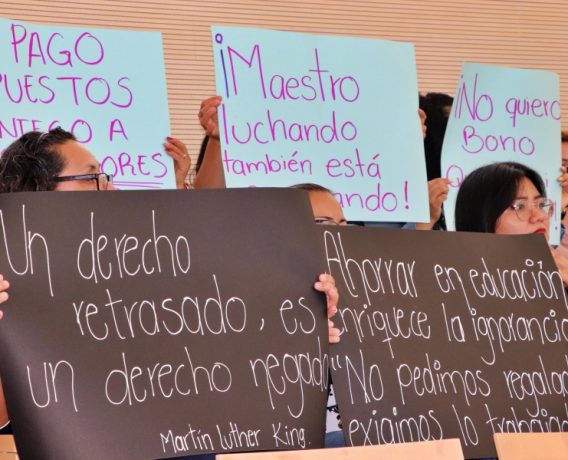 PAGO
PUESTOS
A
ORES
¡Maestro
luchando
también está
ando!
¡No quiero
Bono
Un derecho
retrasado, es
un derecho negado
Martín Luther King.
Ahorrar en educación
enriquece la ignorancia
"No pedimos regalad
exigimos lo trabajad